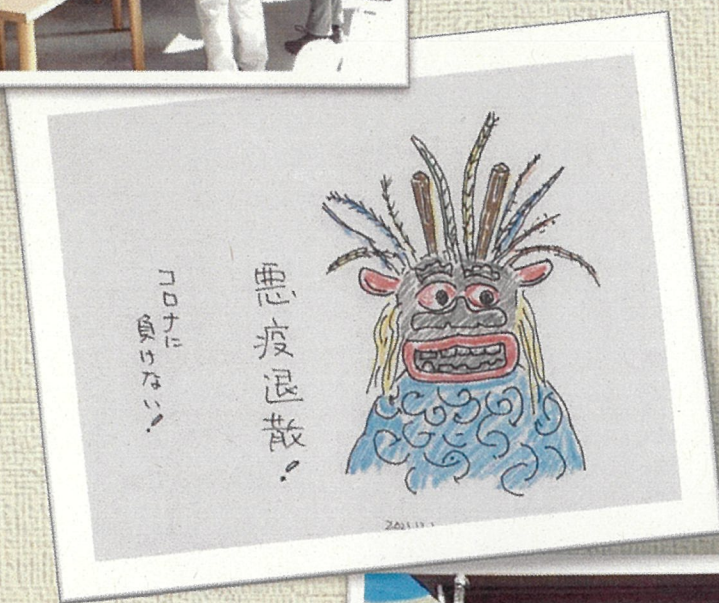 悪疫退散!
コロナに
負けない!